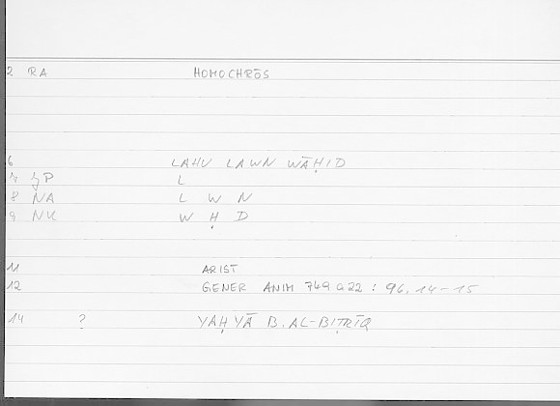 2 RA HOMOCHRŌS
6 LAHU LAWN WĀḤID
7 P L
8 NA L W N
9 NK W Ḥ D
11 ARIST
12 GENER ANIM 749 a 22 : 96, 14-15
14 ? YAḤYĀ B. AL-BIṬRĪQ